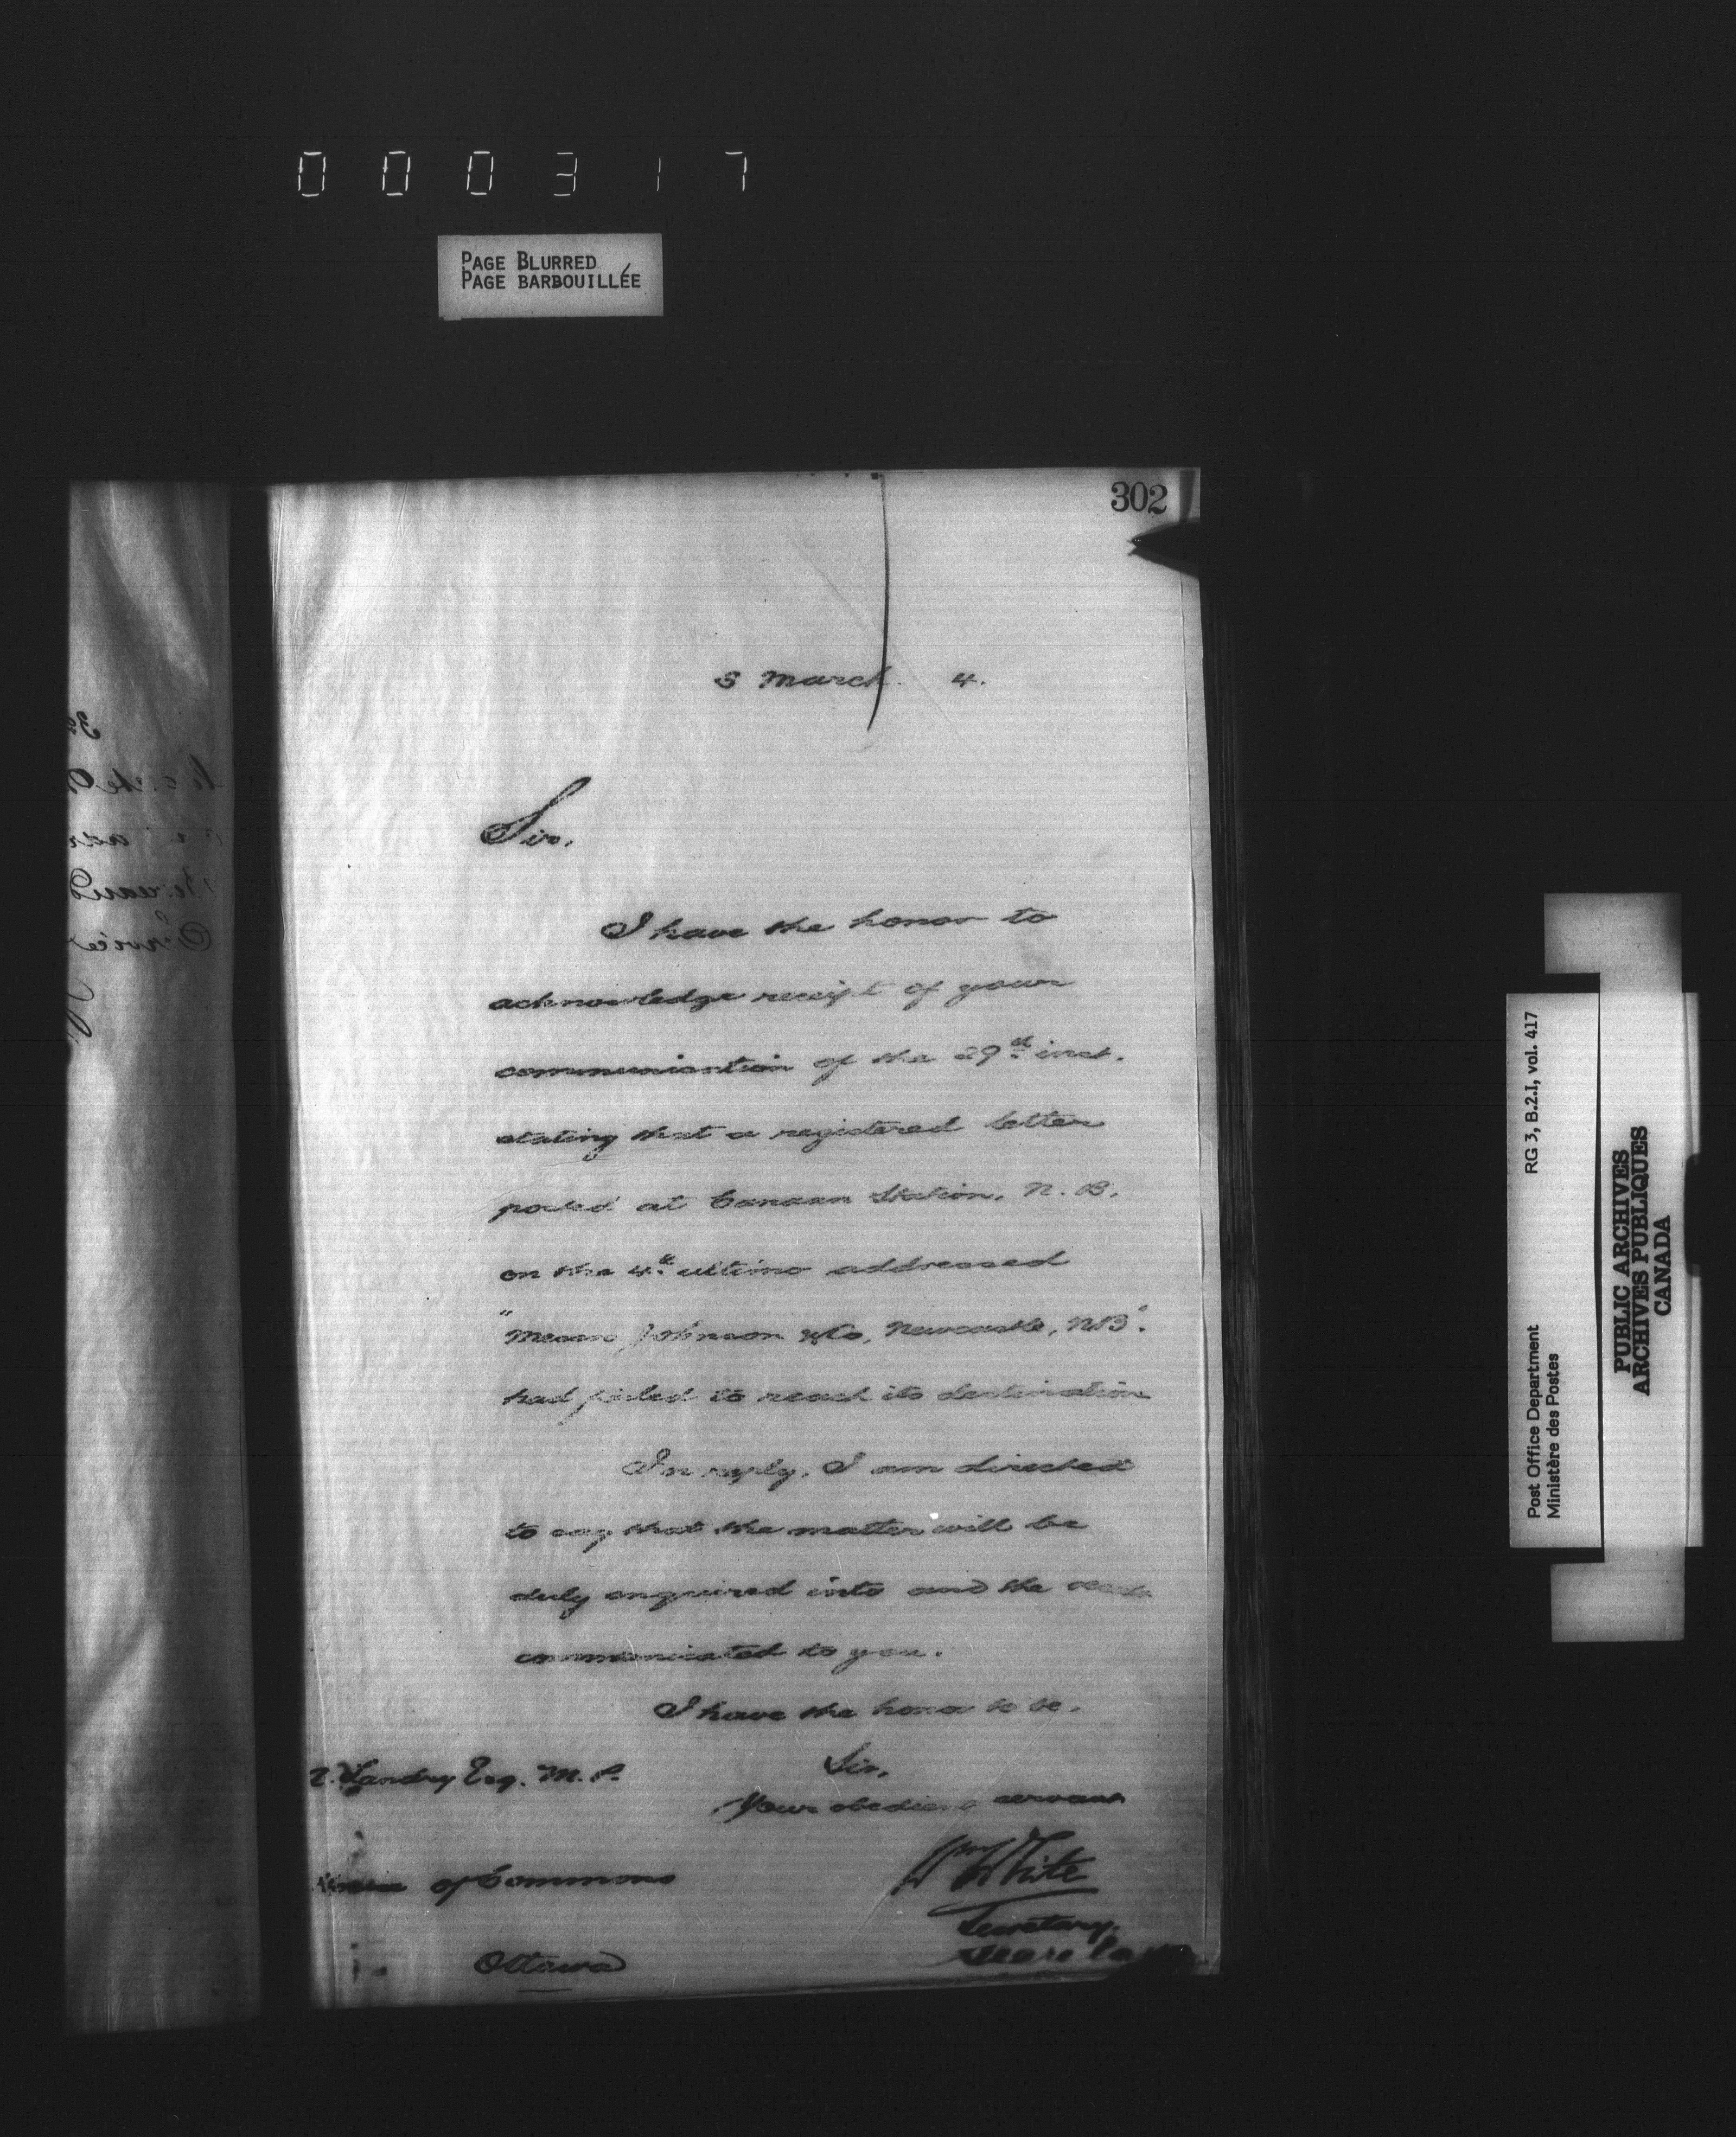 000317
PAGE BLURRED
PAGE BARBOUILLÉE
302
3 March. 4.
Sir,
I have the honor to
acknowledge receipt of your
communication of the 29th inst.
stating that a registered letter
posted at Canaan Station, N. B.
on the 4th ultimo addressed
"Messrs Johnson & Co, Newcastle, N.B".
had failed to reach its destination
In reply, I am directed
to say that the matter will be
duly enquired into and the result
communicated to you.
I have the honor to be,
Sir,
Your obedient servant
Wm White
Secretary.
Landry Esq. M. P.
House of Commons
Ottawa
Post Office Department RG 3, B.2.I, vol. 417
Ministère des Postes
PUBLIC ARCHIVES
ARCHIVES PUBLIQUES
CANADA